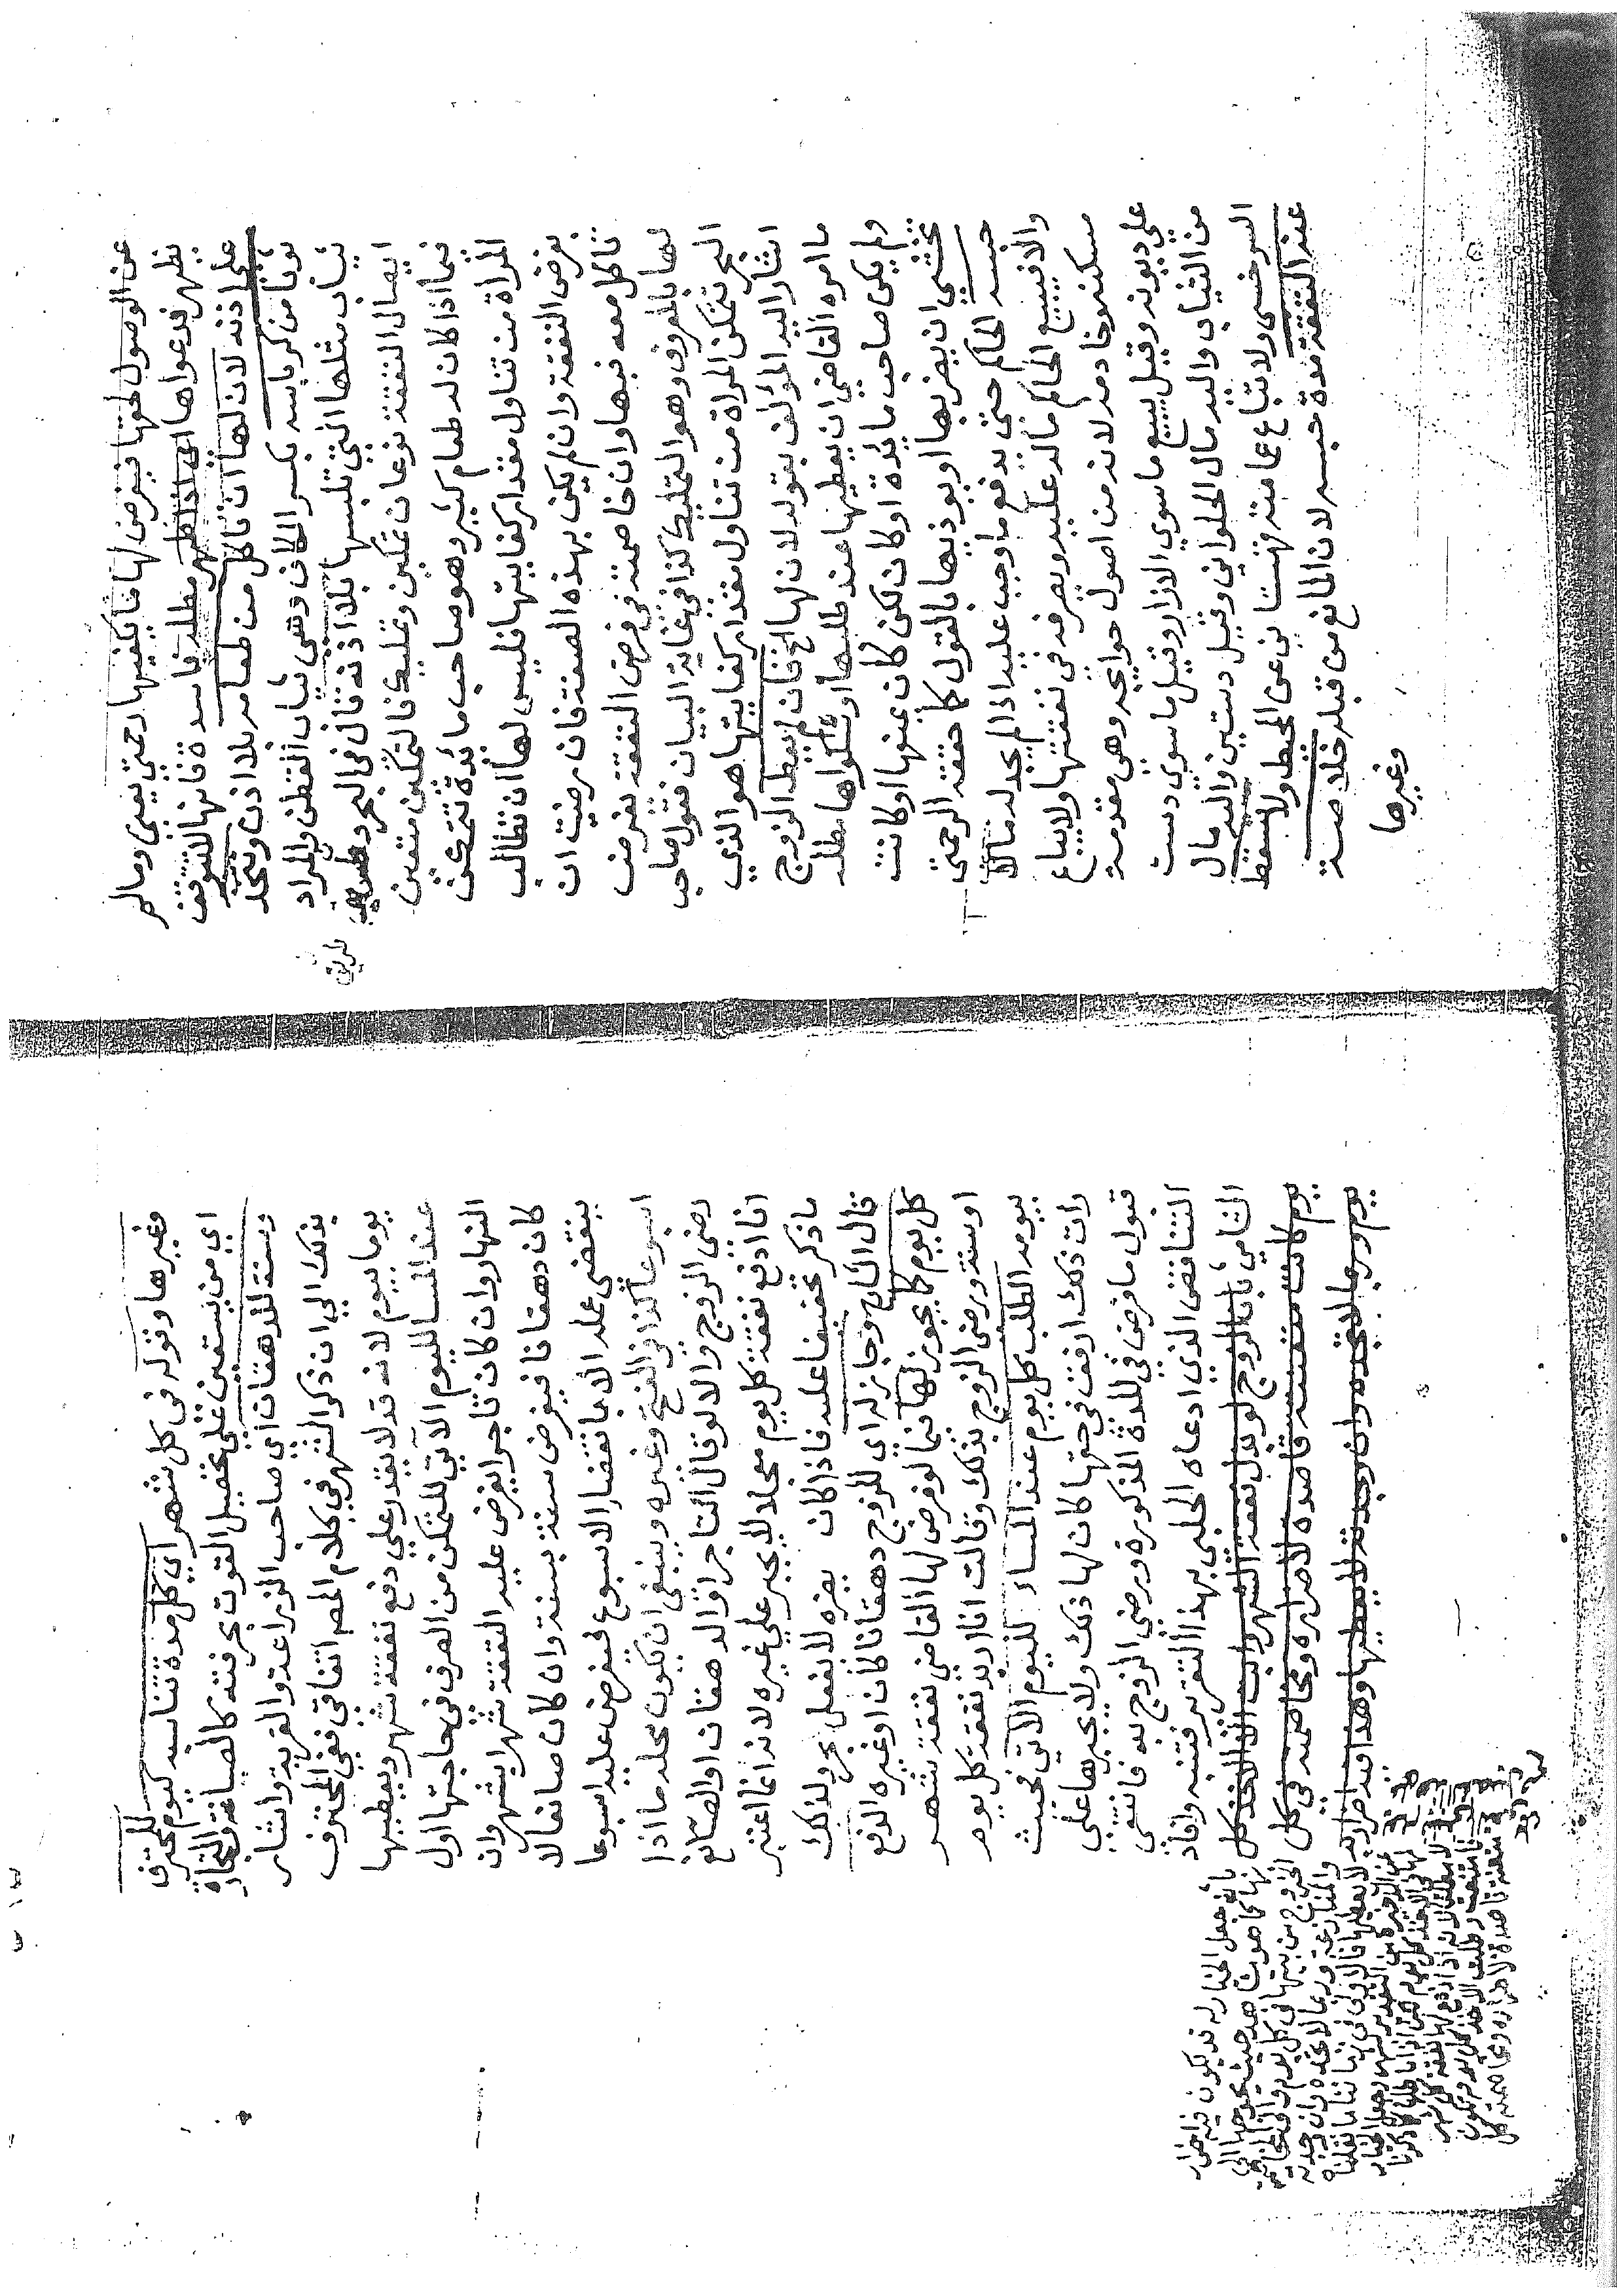 عن الوصول لحقها فيفرض لها ما يكفيها رحمتي يعني وما لم
يظهر فدعواها اي اذا ظهر مطله فاسدة فانها للتوقف
على اذنه لان لها ان تاكل من طعامه بلا اذن وتتخذ
ثوبا من كرباسه بكسر الكاف وهي ثياب القطن والمراد
ثياب مثلها التي تلبسها بلا اذنه قال في البحر
ايصال النفقة نوعان تمكين وتمليك فالتمكين متعين
فيما اذا كان له طعام كثير وهو صاحب مائدة تتمكن
المراة من تناول مقدار كفايتها فليس لها ان تطالب
بفرض النفقة وان لم يكن بهذه الصفة فان رضيت ان
تاكل معه فبها وان خاصمته في فرض النفقة يفرض
لها بالمعروف وهو التمليك كذا في غاية البيان فقول صاحب
البحر تتمكن المراة من تناول مقدار كفايتها هو الذي
اشار اليه المؤلف بقوله لان لها الخ فان لم يعط الزوج
ما امره القاضي ان يعطيها عند طلبها وشكواها مطله
ولم يكن صاحب مائدة او كان لكن كان يمنعها او كانت
تخشى ان يضربها او يوذيها بالقول كما حققه الرحمتي
حبسه الحاكم حتى يدفع ما وجب عليه اذا لم يجد له مالا
والا فيبيع الحاكم ماله عليه ويصرفه في نفقتها ولا يباع
مسكنه وخادمه لانه من اصول حوايجه وهي مقدمة
على ديونه وقيل يبيع ما سوي الازار وقيل ما سوي دست
من الثياب واليه مال الحلواني وقيل دستين واليه مال
السرخسي ولا تباع عمامته قهستاني عن المحيط ولا تسقط
عنه النفقة مدة حبسه لان المانع من قبله خلاصة
وغيرها
وغيرها وقوله في كل شهر اي كل مدة تناسبه كيوم للمحترف
اي من يستعين على تحصيل القوت بحرفته كالصياغة والتجارة
وسنة للدهقان اي صاحب الزراعة والقرية واشار
بذلك الي ان ذكر الشهر في كلام المص اتفاقي ففي المحترف
يوما بيوم لانه قد لا يقدر علي دفع نفقة شهر ويعطيها
عند المسا لليوم الآتي للتمكن من الصرف في حاجتها اول
النهار وان كان تاجرا يفرض عليه النفقة شهرا بشهر وان
كان دهقانا فيفرض سنة بسنة وان كان صانعا لا
ينقضي عمله الا بانقضاء الاسبوع فيفرض عليه اسبوعا
اسبوعا كذا في الفتح وغيره وينبغي ان يكون محله ما اذا
رضى الزوج والا لو قال التاجر او الدهقان او الصانع
انا ادفع نفقة كل يوم معجلا لا يجبر علي غيره لانه انما اعتبر
ما ذكر تخفيفا عليه فاذا كان يضره لا يفعل بحر ولذلك
قال الشارح وجاز له اي للزوج دهقانا كان او غيره الدفع
كل يوم كما يجوز لها فيما لو فرض لها القاضي نفقة شهر
او سنة ورضى الزوج بذلك وقالت انا اريد نفقة كل يوم
بيومه الطلب كل يوم عند المساء لليوم الآتي فحيث
رات ذلك ارفق في حقها كان لها ذلك ولا يجبرها علي
قبول ما فرض في المدة المذكورة ورضى الزوج به فانتفى
التناقض الذي ادعاه الحلبي بهذا التقرير فتنبه وافاد
الشامي بان الزوج لو بذل نفقة الشهر وابت الا الاخذ كل
يوم كانت متعنته قاصدة لاضراره ومخاصمته في كل
يوم وربما لا تجده وان وجدته لا يعطيها وهذا فيه اضرار
بانه جعل الخيار له قد يكون فيه اضرار
بها كما هو شاهد حيث يحوجها الي
الخروج من بيتها في كل يوم
والمنازعة وربما لا تجده وان وجدته
لا يعطيها فالاولى في زماننا ما نقلناه